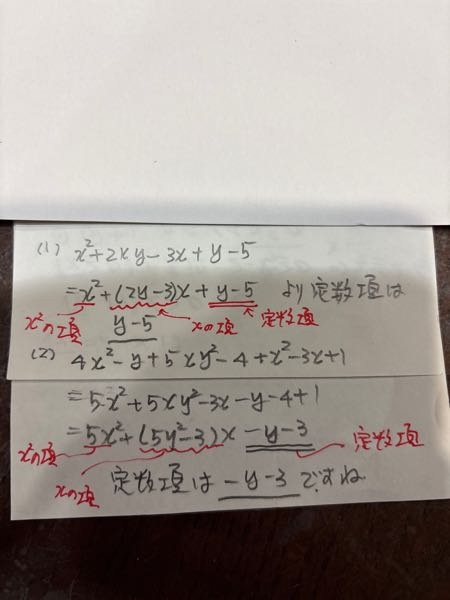 (1) x²+2xy-3x+y-5
=x²+(2y-3)x+y-5 より定数項は
x²の項 y-5 xの項 定数項
(2) 4x²-y+5xy²-4+x²-3x+1
=5x²+5xy²-3x-y-4+1
=5x²+(5y²-3)x-y-3
x²の項 定数項
xの項 定数項は -y-3 ですね